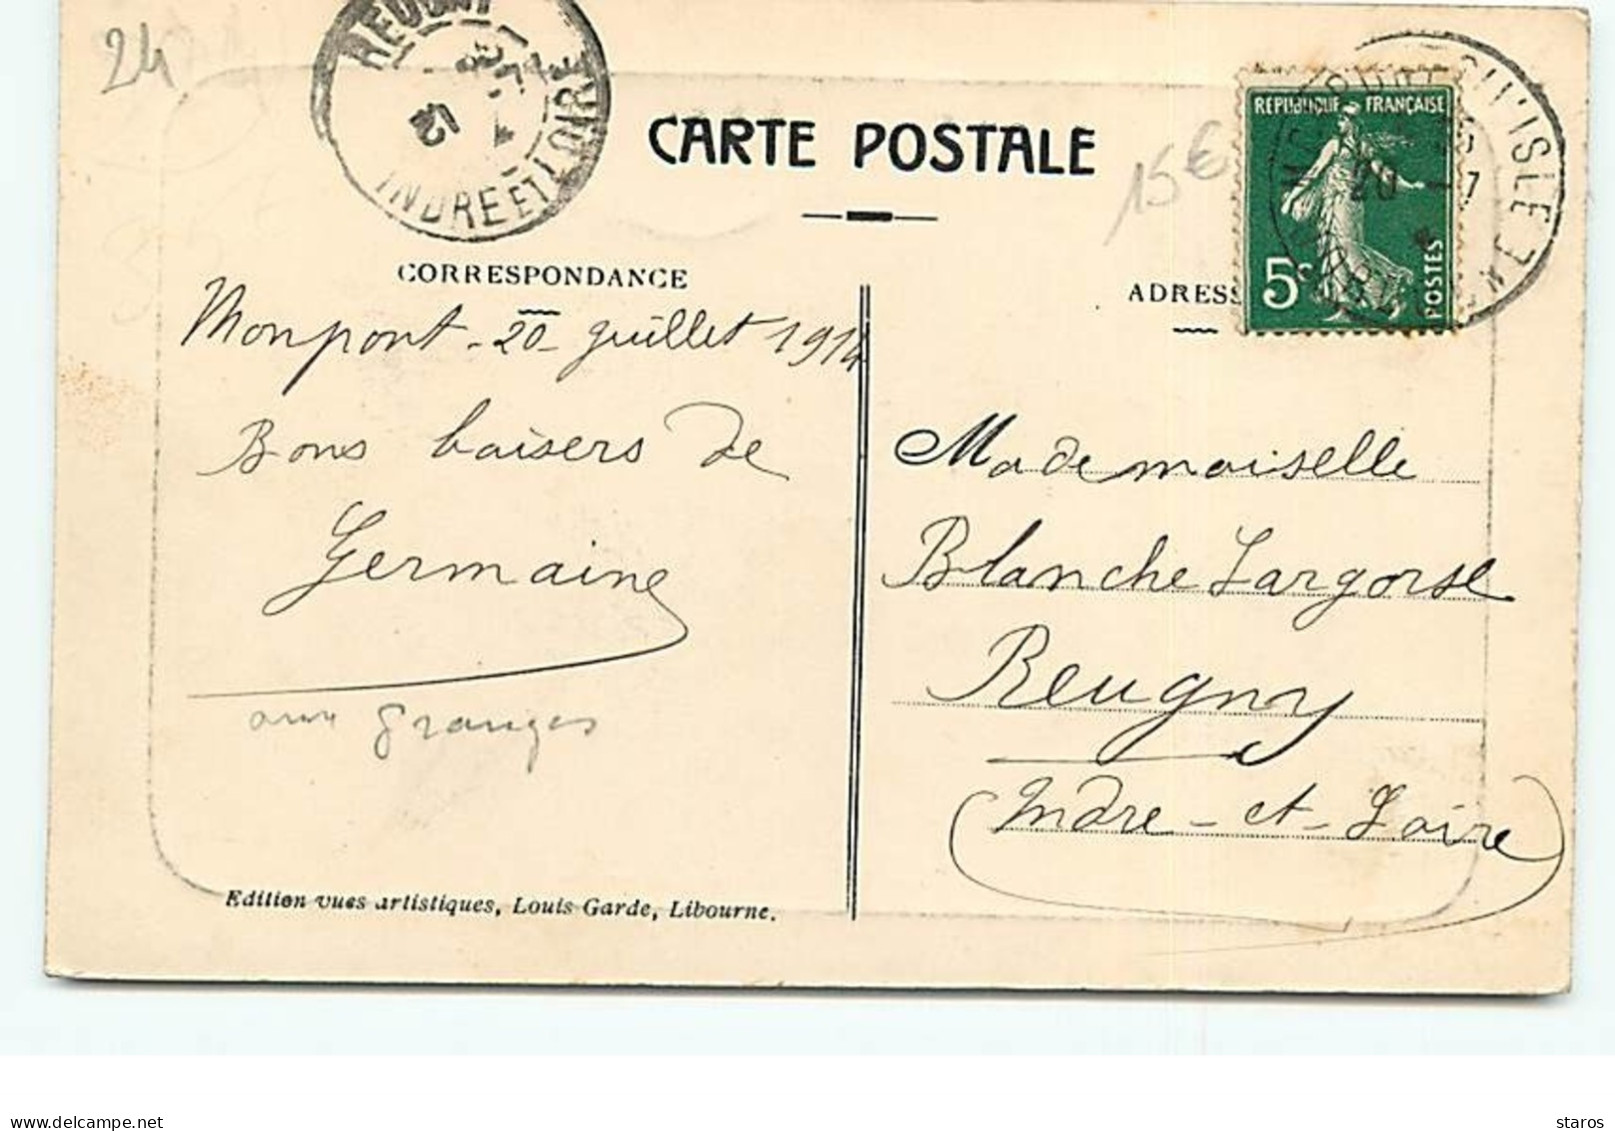 24
REUGNY
12
INDRE ET LOIRE
CARTE POSTALE
15€
REPUBLIQUE FRANÇAISE
5c
POSTES
20 7
L'ISLE
CORRESPONDANCE
ADRESS
Monpont - 20 - juillet 1914
Bons baisers de
Germaine
aux granges
Mademoiselle
Blanche Largorse
Reugny
(Indre-et-Loire)
Edition vues artistiques, Louis Garde, Libourne.
www.delcampe.net
staros